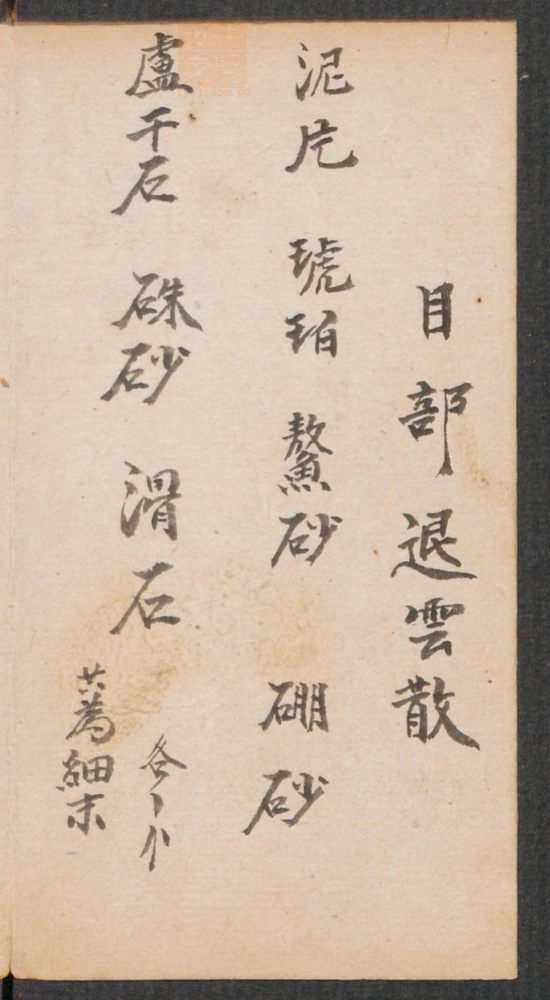 目部退雲散
泥片 琥珀 鰲砂 硼砂
盧干石 硃砂 滑石 各
共為細末